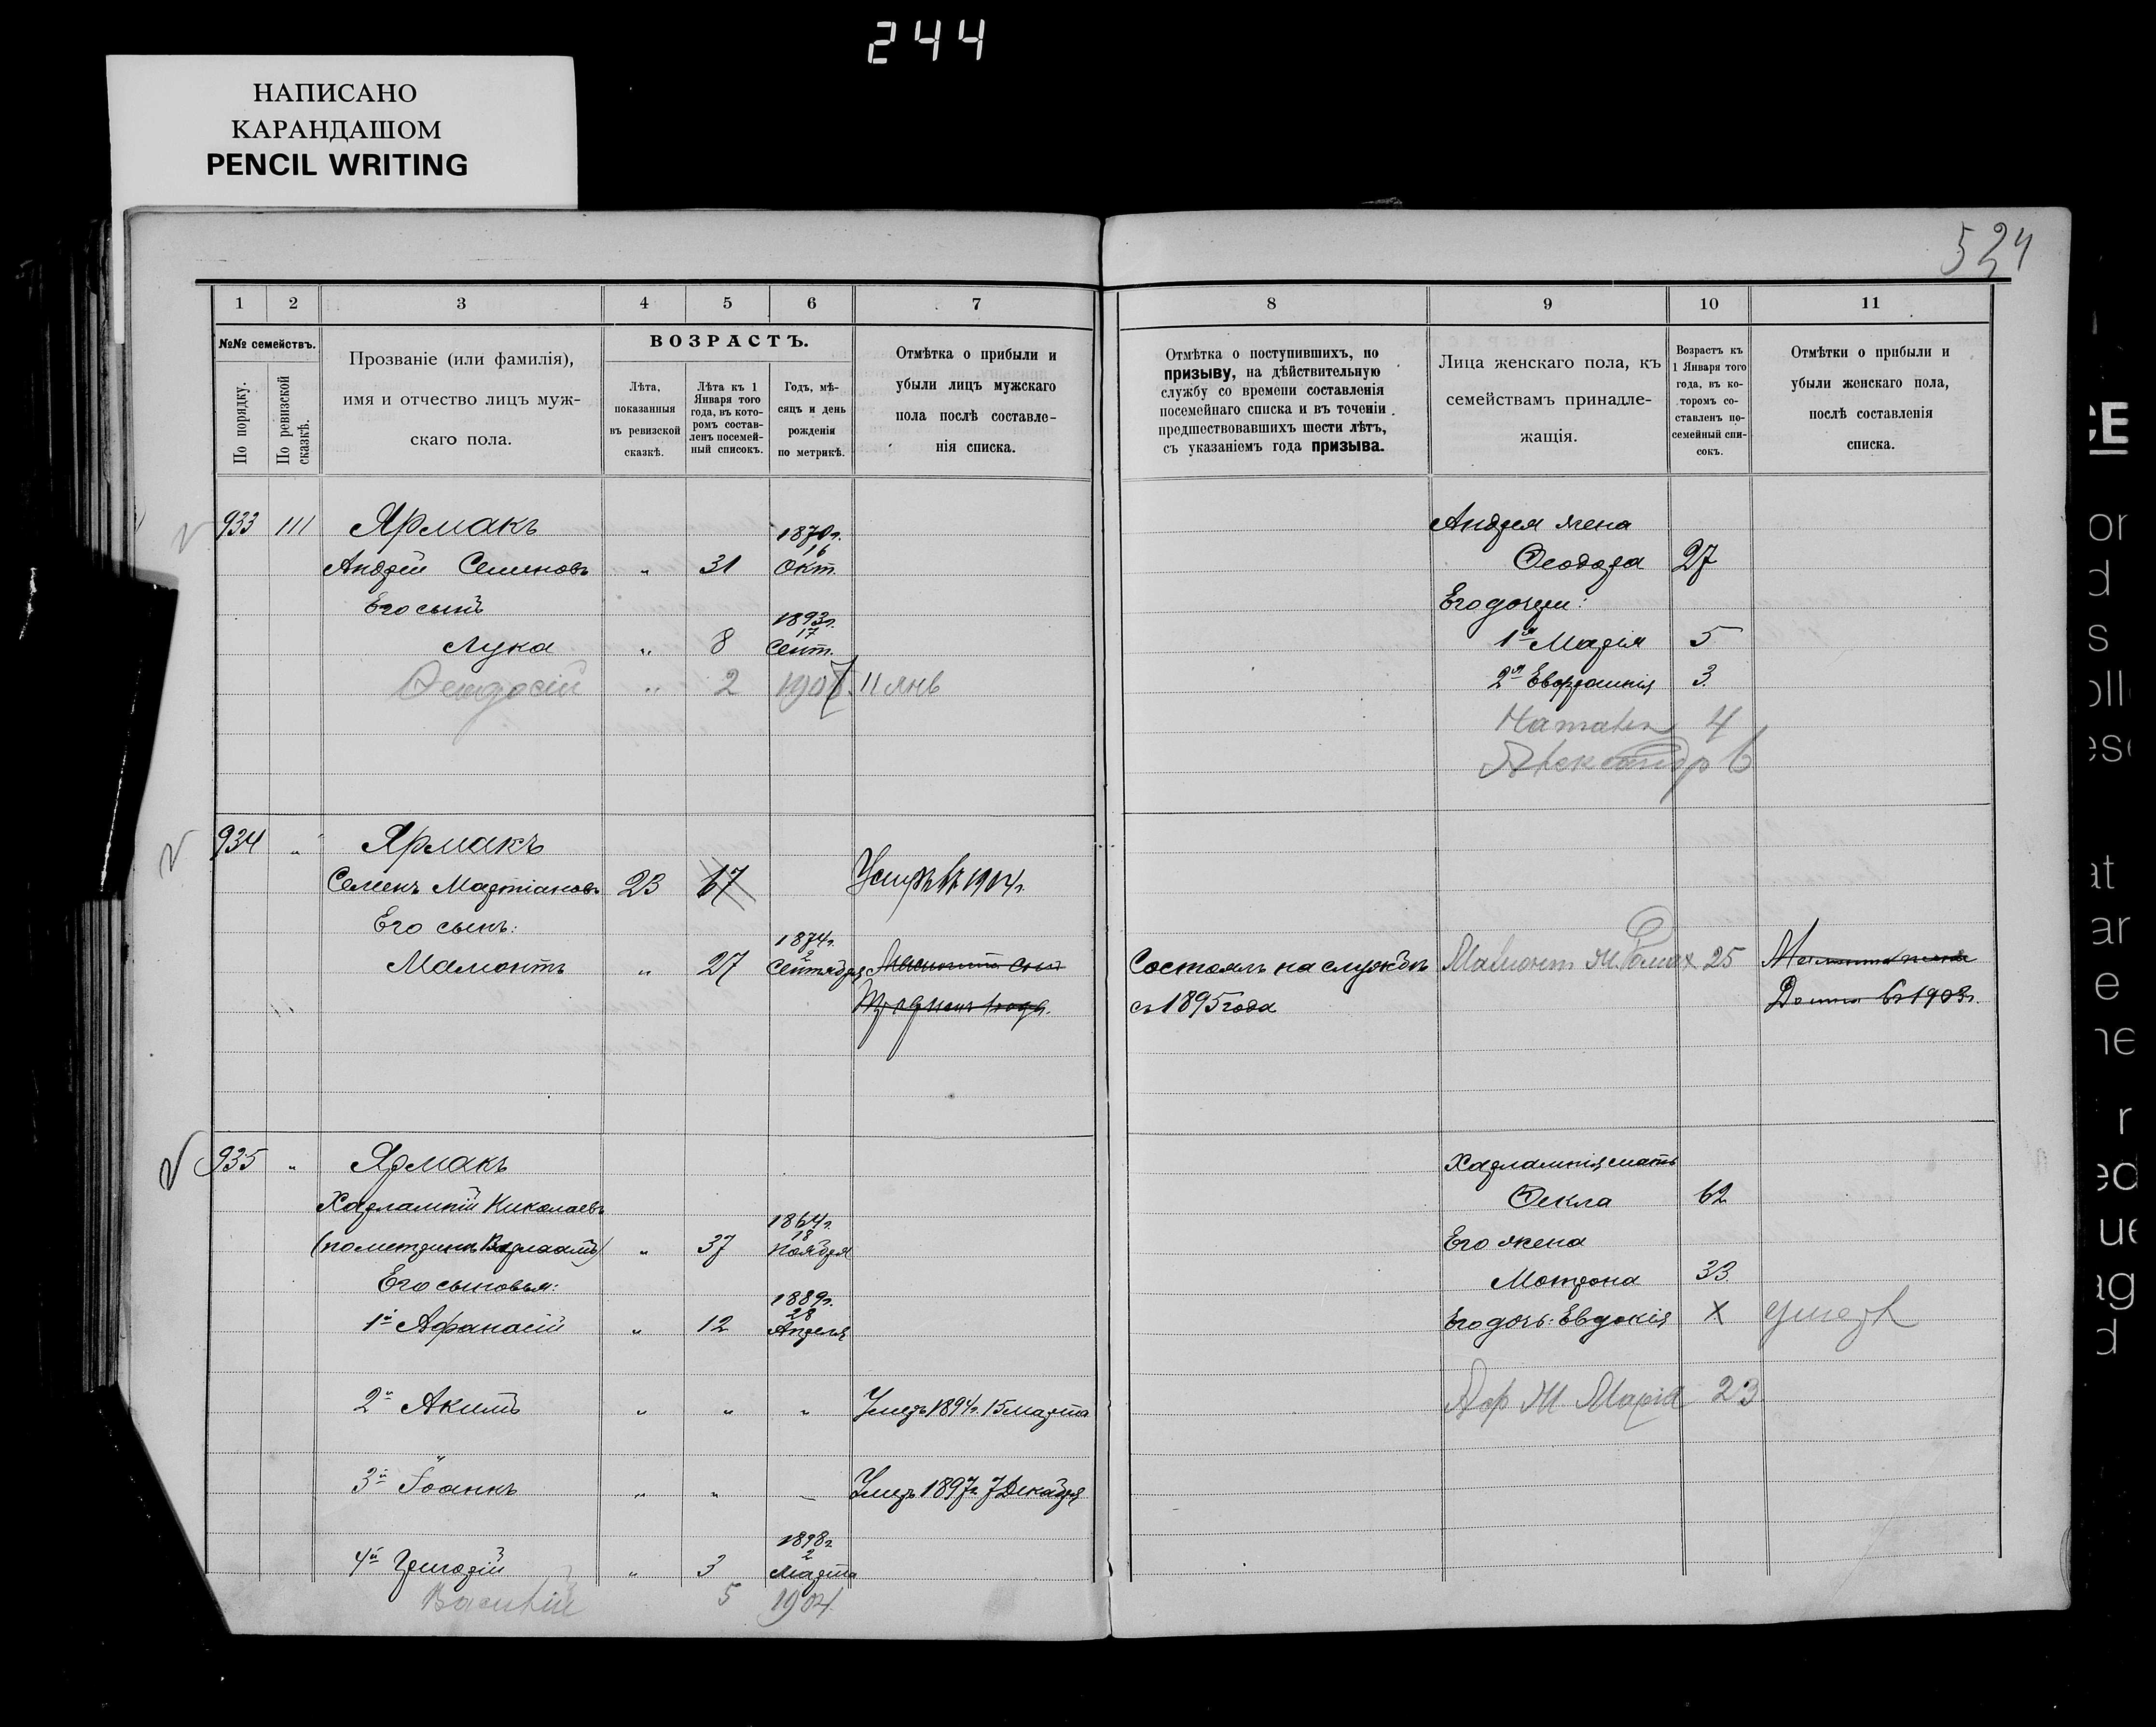 244
НАПИСАНО
КАРАНДАШОМ
PENCIL WRITING
524
1 2 3 4 5 6 7 8 9 10 11
№№ семействъ.
По порядку.
По ревизской сказкѣ.
Прозваніе (или фамилія),
имя и отчество лицъ муж-
скаго пола.
ВОЗРАСТЪ.
Лѣта,
показанныя
въ ревизской
сказкѣ.
Лѣта къ 1
Января того
года, въ кото-
ромъ состав-
ленъ посемей-
ный списокъ.
Годъ, мѣ-
сяцъ и день
рожденія
по метрикѣ.
Отмѣтка о прибыли и
убыли лицъ мужскаго
пола послѣ составле-
нія списка.
Отмѣтка о поступившихъ, по
призыву, на дѣйствительную
службу со времени составленія
посемейнаго списка и въ теченіи
предшествовавшихъ шести лѣтъ,
съ указаніемъ года призыва.
Лица женскаго пола, къ
семействамъ принадле-
жащія.
Возрастъ къ
1 Января того
года, въ ко-
торомъ со-
ставленъ по-
семейный спи-
сокъ.
Отмѣтки о прибыли и
убыли женскаго пола,
послѣ составленія
списка.
933 111 Ярмакъ 1870г. Андрея жена
Андрей Семеновъ „ 31 16 Окт. Ѳеодора 27
Его сынъ 1893г. Его дочери:
Лука „ 8 17 Сент. 1я Марія 5
Ѳеодосій „ 2 1907 11 янв 2я Евфросинія 3
Наталія 4
Александр 6
934 „ Ярмакъ
Семенъ Мартіановъ 23 67 Умеръ въ 1904г.
Его сынъ: 1874г.
Мамонтъ „ 27 2 Сентября Состоялъ на службѣ Мамонт ж. 25
съ 1895 года въ 1903г.
935 „ Ярмакъ Харлампія мать
Харлампій Николаевъ Ѳекла 62
1864г.
(по метрикѣ Варлаамъ) „ 37 18 Ноября Его жена
Его сыновья: Мотрона 33
1889г.
1й Афанасій „ 12 28 Апреля Его дочь: Евдокія х умерл
2й Акимъ „ „ „ Умеръ 1894г. 15 марта Аф ж Марія 23
3й Іоаннъ „ „ — Умеръ 1897г. 7 Декабря
1898г.
4й Григорій „ 3 2 Марта
Василій 5 1904